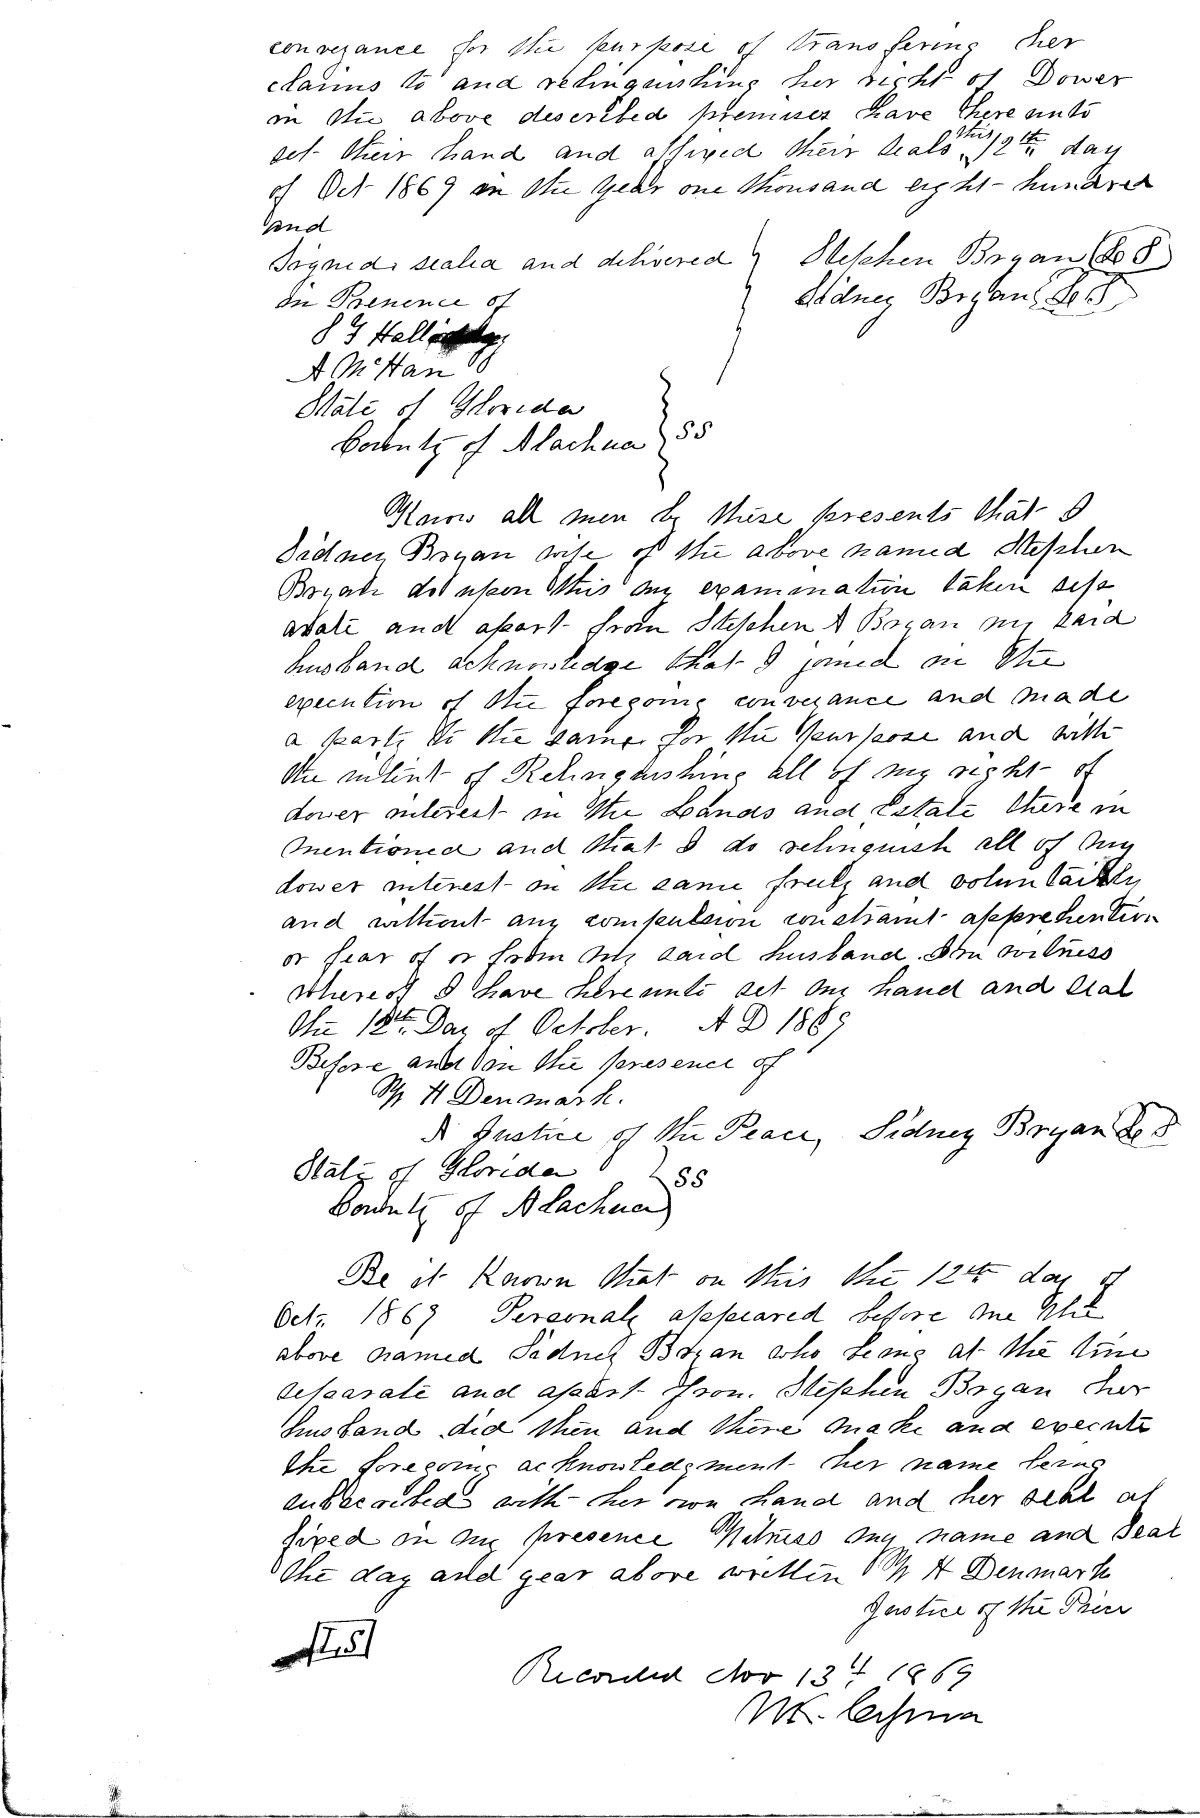 conveyance for the purpose of transfering her
claims to and relinquishing her right of Dower
in the above described premises have there unto
set their hand and affixed their seals this 12th day
of Oct 1869 in the year one thousand eight hundred
and
Signed, sealed and delivered Stephen Bryan (L S)
in Presence of Sidney Bryan (L S)
S F
A McHan
State of Florida
County of Alachua } SS
Know all men by these presents that I
Sidney Bryan wife of the above named Stephen
Bryan do upon this my examination taken sep
arate and apart from Stephen A Bryan my said
husband acknowledge that I joined in the
execution of the foregoing conveyance and made
a party to the same for the purpose and with
the intent of Relinquishing all of my right of
dower interest in the Lands and Estate there in
mentioned and that I do relinquish all of my
dower interest in the same freely and voluntairly
and without any compulsion constraint apprehention
or fear of or from my said husband. In witness
whereof I have hereunto set my hand and seal
the 12th Day of October. A D 1869
Before and in the presence of
H Denmark.
A Justice of the Peace, Sidney Bryan (L S)
State of Florida
County of Alachua } SS
Be it Known that on this the 12th day of
Oct. 1869 Personaly appeared before me the
above named Sidney Bryan who being at the time
separate and apart from Stephen Bryan her
husband did then and there make and execute
the foregoing acknowledgment her name being
subscribed with her own hand and her seal af
fixed in my presence Witness my name and Seal
the day and year above written H Denmark
Justice of the Peice
L,S
Recorded Nov 13th 1869